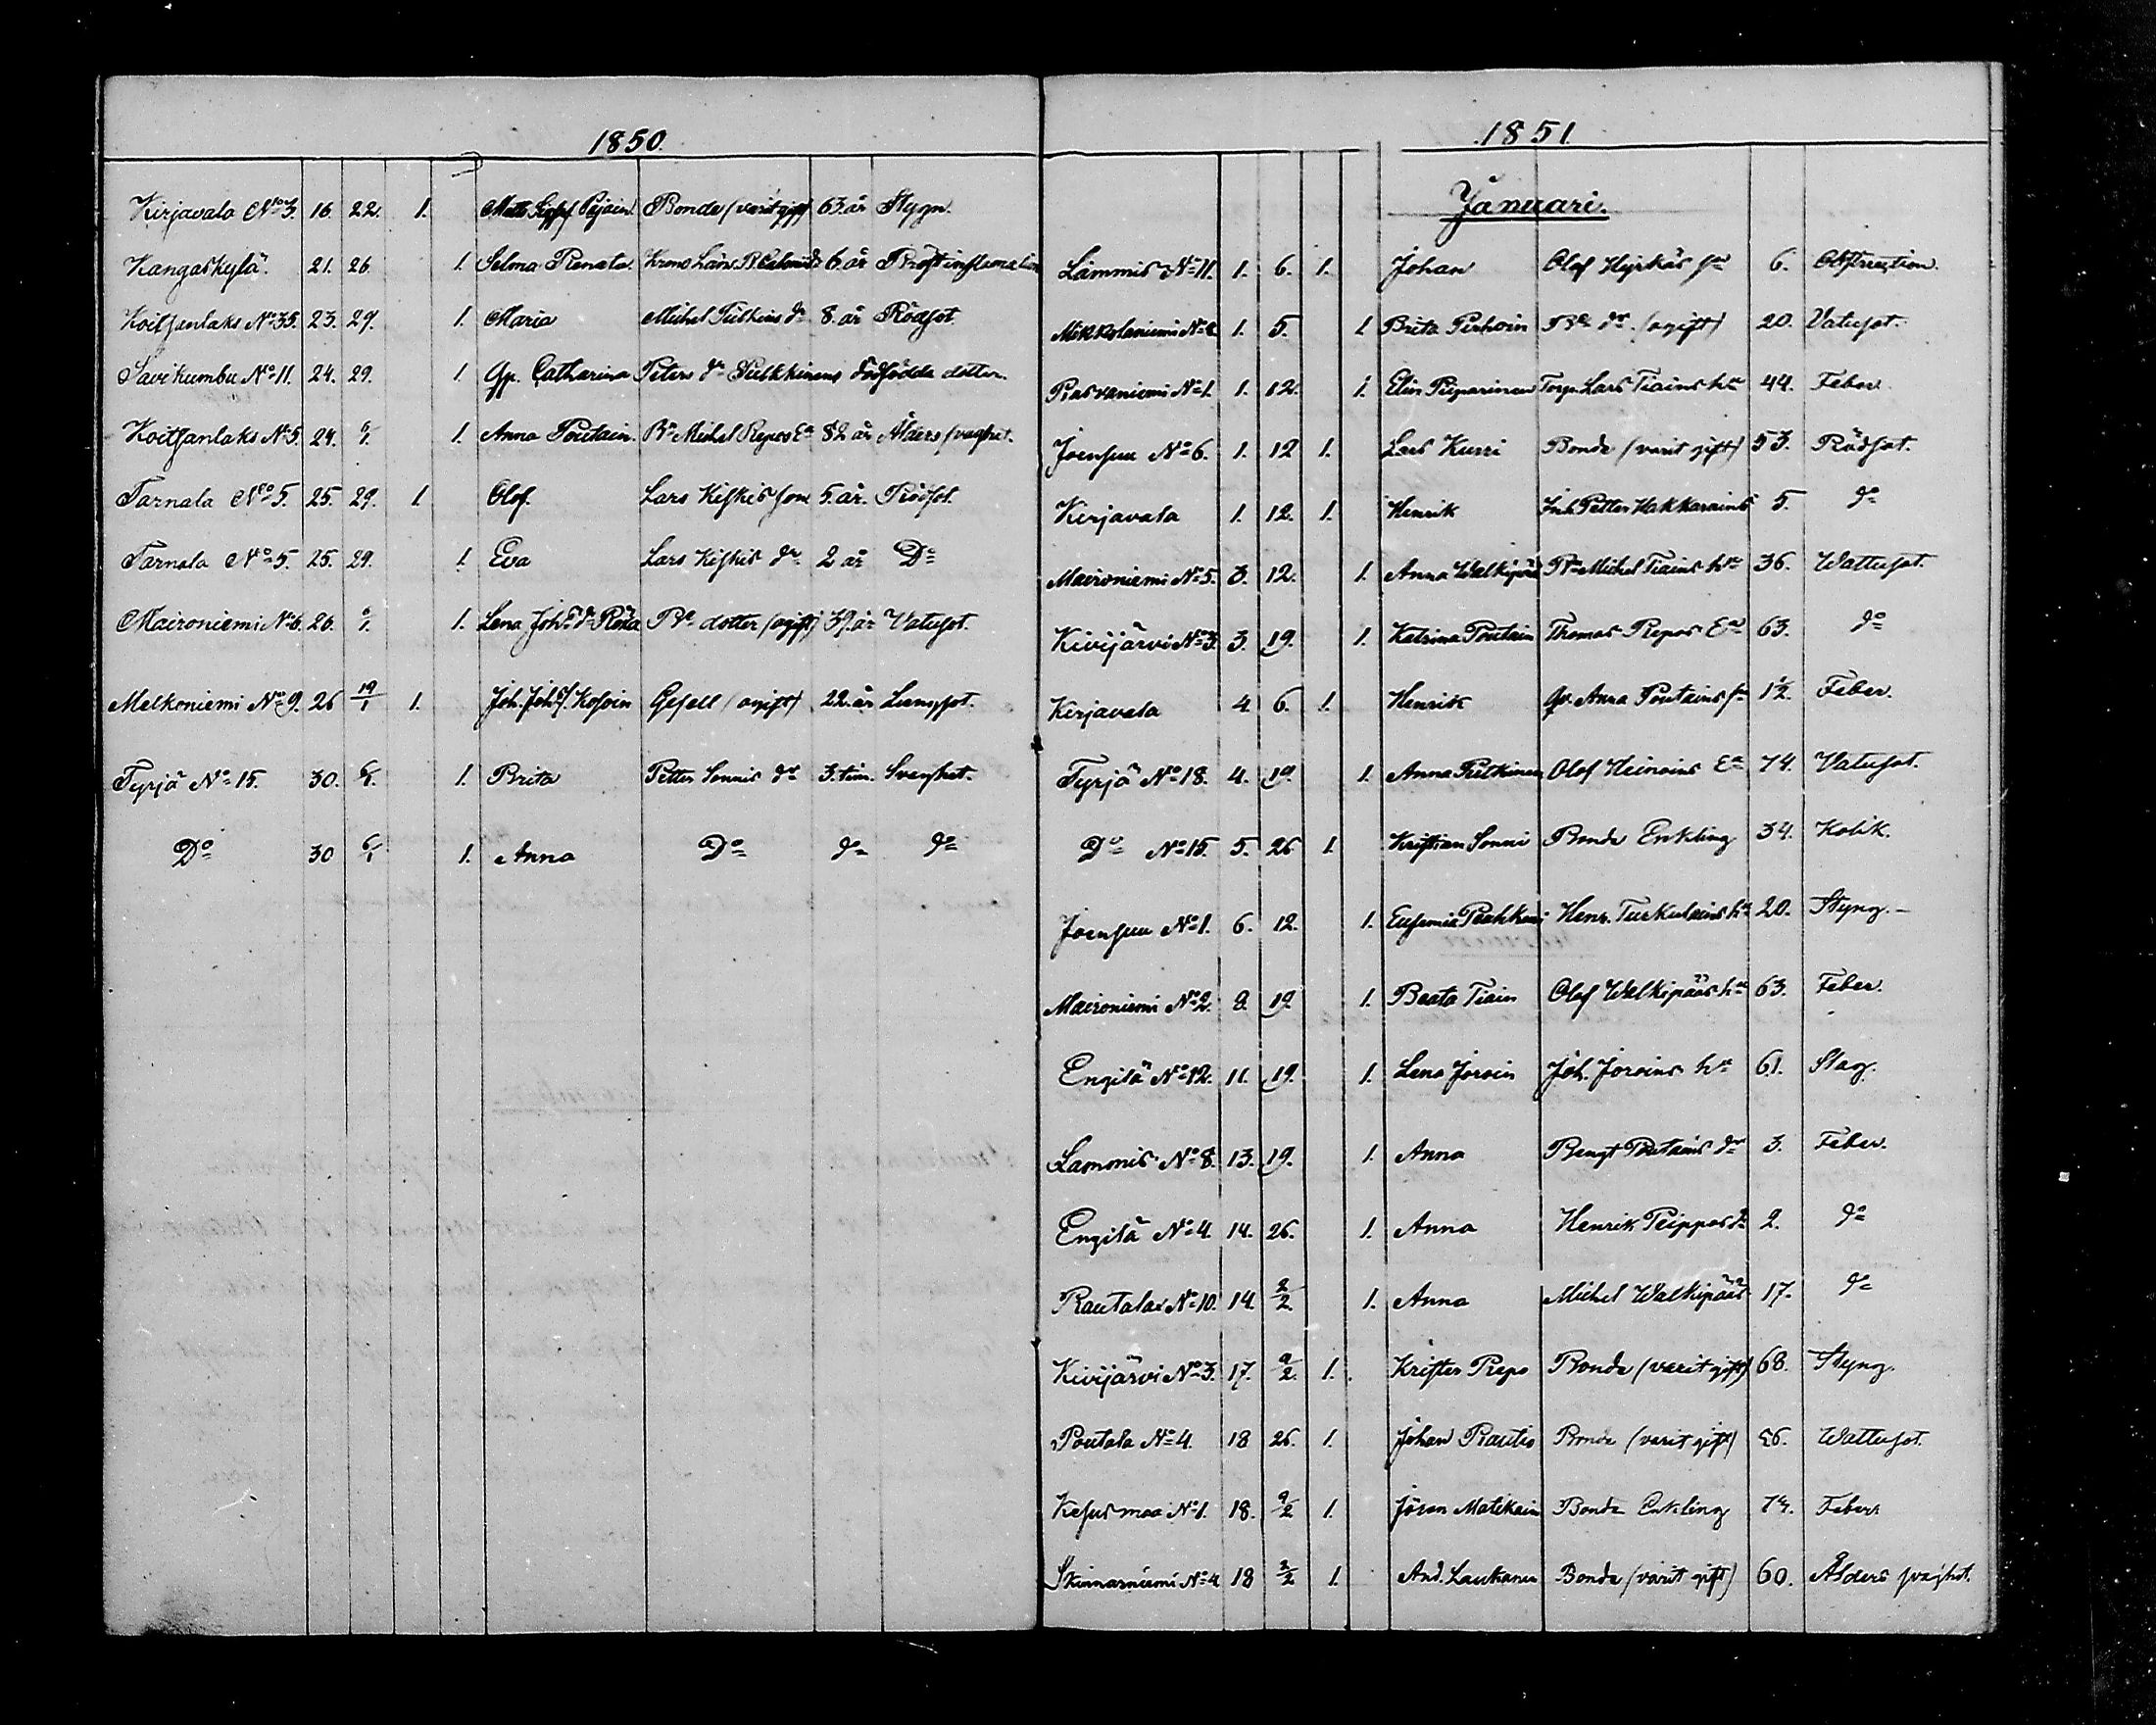 1850.
Kirjavala No 3. 16. 22. 1. Matts Bonde (varit gift) 63. år Stygn.
Kangaskylä. 21. 26. 1. Selma Renata 6. år Bröstinflamation
Koitsanlaks No 35. 23. 29. 1. Maria Michel dr 8. år Rödsot.
Savikumbu No 11. 24. 29. 1. Qp. Catharina Peters dr Pulkkinens dödfödda dotter.
Koitsanlaks No 5. 24. 6/1. 1. Anna Poutain. Michel Repos Ea 82 år Ålders svaghet.
Tarnala No 5. 25. 29. 1. Olof. Lars Kiskis son 5. år. Rödsot.
Tarnala No 5. 25. 29. 1. Eva Lars Kiskis dr 2 år Do
Maironiemi No 6. 26. 6/1. 1. Lena Johs dr dotter (ogift) 39. år Vatusot.
Melkoniemi No 9. 26 19/1 1. Joh. Johs s. Kosoin Gesell (ogift) 22. år Lungsot.
Tyrjä No 15. 30. 6/1. 1. Brita Petter Sonnis dr 3. tim. Svaghet.
Do 30 6/1 1. Anna Do do do
1851.
Januari.
Lammis No 11. 1. 6. 1. Johan Olof Hyrkäs sn 6. Obstruction.
Mikkolaniemi No 2 1. 5. 1. Brita Pirhoin dr. (ogift) 20. Vatusot.
Rasvaniemi No 1. 1. 12. 1. Elin Piiparinen Torp. Lars Tiains hu 44. Feber.
Joensuu No 6. 1. 12 1. Lars Kurri Bonde (varit gift) 53. Rödsot.
Kirjavala 1. 12. 1. Henrik Inh. Petter Hakkarains 5. do
Maironiemi No 5. 3. 12. 1. Anna Walkipää Michel Tiains hu 36. Wattusot.
Kivijärvi No 3. 3. 19. 1. Katrina Poutain Thomas Repos Ea 63. do
Kirjavala 4 6. 1. Henrik Qp. Anna Poutains sn 1½. Feber.
Tyrjä No 18. 4. 19. 1. Anna Pulkinen Olof Heinoins Ea 74. Vatusot.
Do No 15. 5. 26 1. Kristian Sonni Bonde Enkling 34. Kolik.
Joensuu No 1. 6. 12. 1. Eufemia Henr. Turkulains hu 20. Styng.
Maironiemi No 2. 8. 19. 1. Beata Tiain Olof Walkipääs hu 63. Feber.
Engilä No 12. 11. 19. 1. Lena Joroin Joh. Joroins hu 61. Slag.
Lamonis No 8. 13. 19. 1. Anna Bengt dr 3. Feber.
Engilä No 4. 14. 26. 1. Anna Henrik Peippos dr 2. do
Rautalax No 10. 14. 2/2 1. Anna Michel Walkipääs 17. do
Kivijärvi No 3. 17. 9/2. 1. Krister Repo Bonde (varit gift) 68. Styng.
Poutala No 4. 18 26. 1. Johan Rautio Bonde (varit gift) 56. Wattusot.
Kesusmaa No 1. 18. 9/2 1. Jöran Matikain Bonde Enkling 74. Feber
Skinnarniemi No 4 18 2/2 1. And. Laukanen Bonde (varit gift) 60. Ålders svaghet.